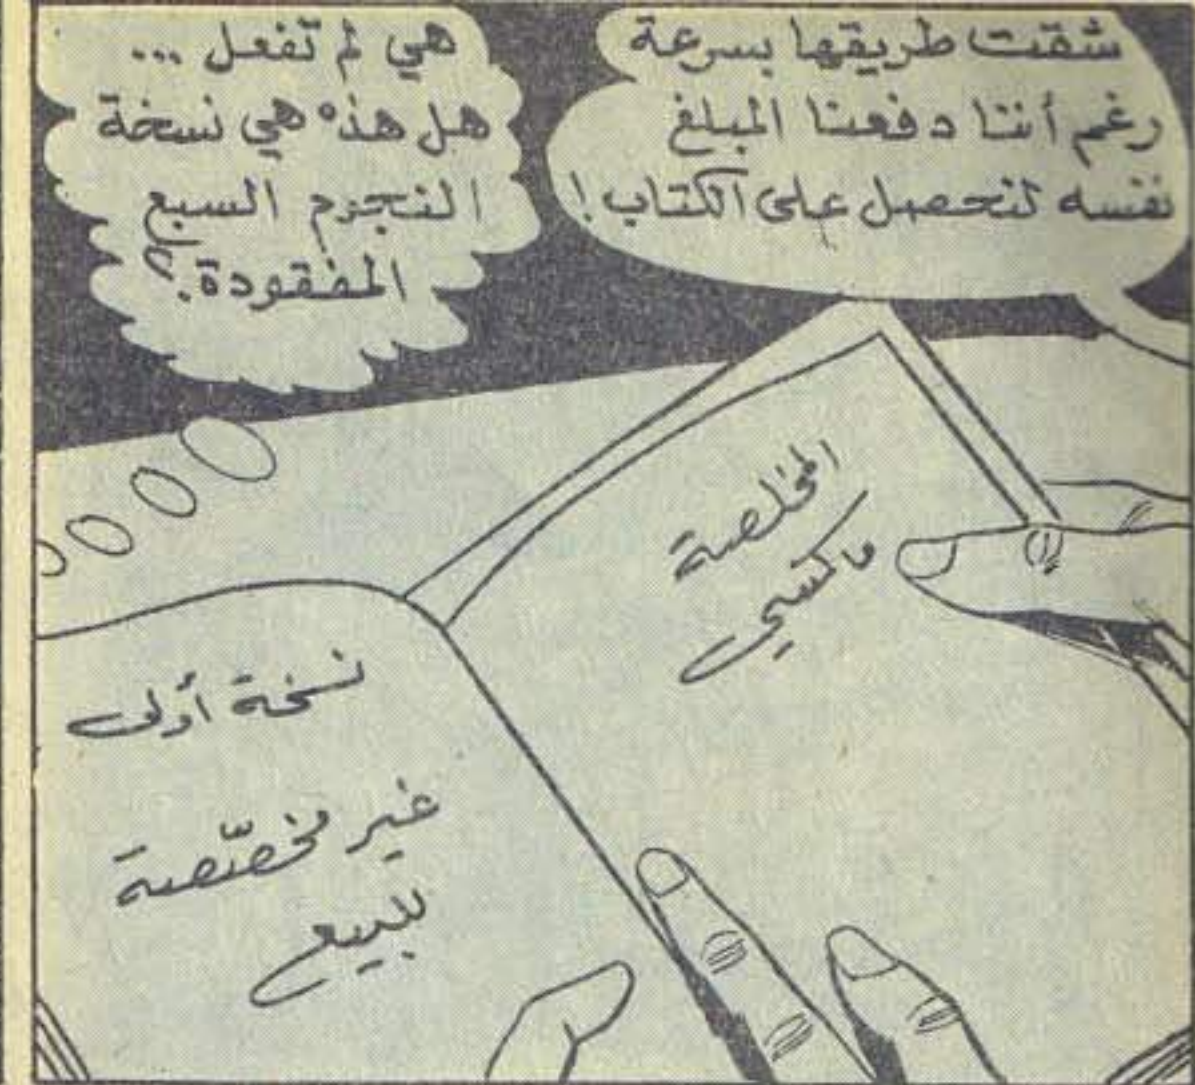 شقت طريقها بسرعة
رغم أننا دفعنا المبلغ
نفسه لنحصل على الكتاب!
هي لم تفعل ...
هل هذه هي نسخة
النجوم السبع
المفقودة؟
المخلصة
ماكسي
نسخة أولى
غير مخصّصة
للبيع